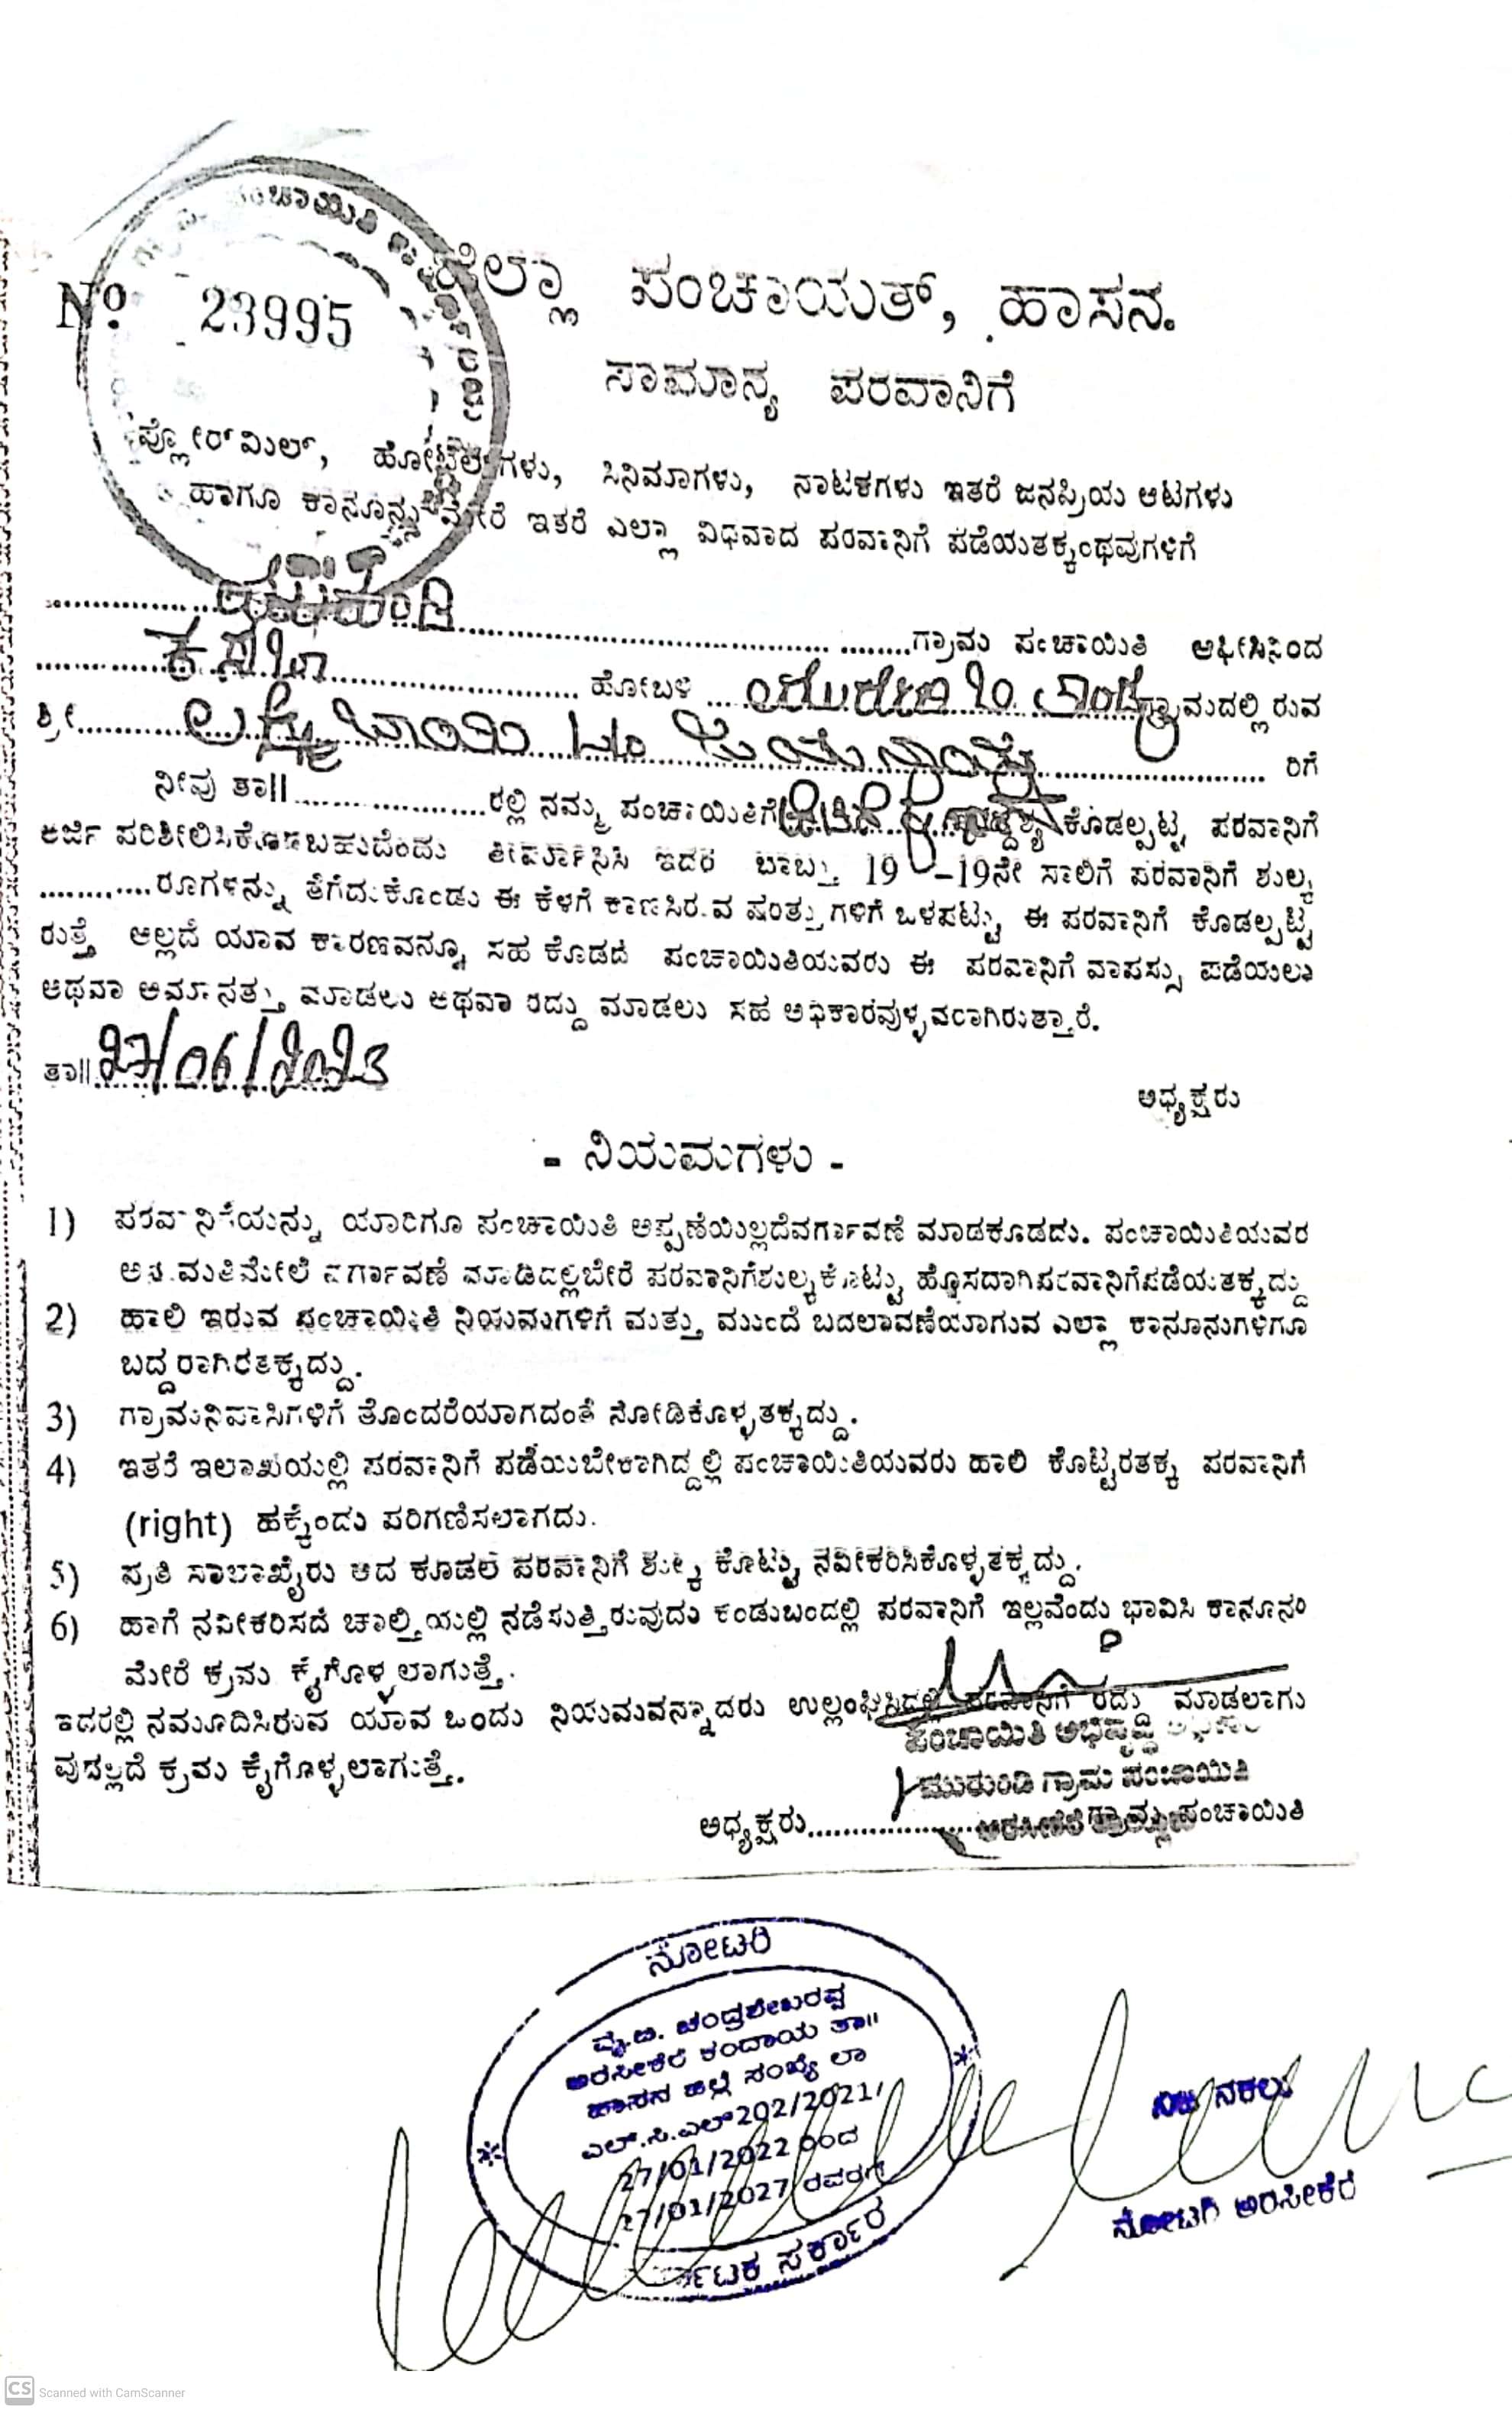 ಜಿಲ್ಲಾ ಪಂಚಾಯತ್, ಹಾಸನ.
No. 23995
ಸಾಮಾನ್ಯ ಪರವಾನಿಗೆ
ಪ್ಲೋರ್‌ಮಿಲ್, ಹೋಟೆಲ್‌ಗಳು, ಸಿನಿಮಾಗಳು, ನಾಟಕಗಳು ಇತರೆ ಜನಪ್ರಿಯ ಆಟಗಳು
ಹಾಗೂ ಕಾನೂನ್ನು ಮೇರೆ ಇತರೆ ಎಲ್ಲಾ ವಿಧವಾದ ಪರವಾನಿಗೆ ಪಡೆಯತಕ್ಕಂಥವುಗಳಿಗೆ
ಗ್ರಾಮ ಪಂಚಾಯಿತಿ ಆಫೀಸಿನಿಂದ
ಕಸಬಾ ಹೋಬಳಿ ತಾಂಡ್ಯ ಗ್ರಾಮದಲ್ಲಿರುವ
ಶ್ರೀ ಲಕ್ಷ್ಮೀಬಾಯಿ ರಿಗೆ
ನೀವು ತಾ|| ರಲ್ಲಿ ನಮ್ಮ ಪಂಚಾಯಿತಿಗೆ ಕೊಡಲ್ಪಟ್ಟ ಪರವಾನಿಗೆ
ಅರ್ಜಿ ಪರಿಶೀಲಿಸಿಕೊಡಬಹುದೆಂದು ತೀರ್ಮಾನಿಸಿ ಇದರ ಬಾಬ್ತು 19 –19ನೇ ಸಾಲಿಗೆ ಪರವಾನಿಗೆ ಶುಲ್ಕ
ರೂಗಳನ್ನು ತೆಗೆದುಕೊಂಡು ಈ ಕೆಳಗೆ ಕಾಣಸಿರುವ ಷರತ್ತುಗಳಿಗೆ ಒಳಪಟ್ಟು ಈ ಪರವಾನಿಗೆ ಕೊಡಲ್ಪಟ್ಟಿ
ರುತ್ತೆ ಅಲ್ಲದೆ ಯಾವ ಕಾರಣವನ್ನೂ ಸಹ ಕೊಡದೆ ಪಂಚಾಯಿತಿಯವರು ಈ ಪರವಾನಿಗೆ ವಾಪಸ್ಸು ಪಡೆಯಲು
ಅಥವಾ ಅಮಾನತ್ತು ಮಾಡಲು ಅಥವಾ ರದ್ದು ಮಾಡಲು ಸಹ ಅಧಿಕಾರವುಳ್ಳವರಾಗಿರುತ್ತಾರೆ.
ತಾ|| 27/06/2023
ಅಧ್ಯಕ್ಷರು
- ನಿಯಮಗಳು -
1) ಪರವಾನಿಗೆಯನ್ನು ಯಾರಿಗೂ ಪಂಚಾಯಿತಿ ಅಪ್ಪಣೆಯಿಲ್ಲದೆವರ್ಗಾವಣೆ ಮಾಡಕೂಡದು. ಪಂಚಾಯಿತಿಯವರ
ಅನುಮತಿಮೇಲೆ ವರ್ಗಾವಣೆ ಮಾಡಿದಲ್ಲಿಬೇರೆ ಪರವಾನಿಗೆಶುಲ್ಕಕೊಟ್ಟು ಹ್ಹೊಸದಾಗಿಪರವಾನಿಗೆಪಡೆಯತಕ್ಕದ್ದು
2) ಹಾಲಿ ಇರುವ ಪಂಚಾಯಿತಿ ನಿಯಮಗಳಿಗೆ ಮತ್ತು ಮುಂದೆ ಬದಲಾವಣೆಯಾಗುವ ಎಲ್ಲಾ ಕಾನೂನುಗಳಿಗೂ
ಬದ್ದರಾಗಿರತಕ್ಕದ್ದು.
3) ಗ್ರಾಮನಿವಾಸಿಗಳಿಗೆ ತೊಂದರೆಯಾಗದಂತೆ ನೋಡಿಕೊಳ್ಳತಕ್ಕದ್ದು.
4) ಇತರೆ ಇಲಾಖೆಯಲ್ಲಿ ಪರವಾನಿಗೆ ಪಡೆಯಬೇಕಾಗಿದ್ದಲ್ಲಿ ಪಂಚಾಯಿತಿಯವರು ಹಾಲಿ ಕೊಟ್ಟಿರತಕ್ಕ ಪರವಾನಿಗೆ
(right) ಹಕ್ಕೆಂದು ಪರಿಗಣಿಸಲಾಗದು.
5) ಪ್ರತಿ ಸಾಲಾಖೈರು ಆದ ಕೂಡಲೆ ಪರವಾನಿಗೆ ಶುಲ್ಕ ಕೊಟ್ಟು ನವೀಕರಿಸಿಕೊಳ್ಳತಕ್ಕದ್ದು.
6) ಹಾಗೆ ನವೀಕರಿಸದೆ ಚಾಲ್ತಿಯಲ್ಲಿ ನಡೆಸುತ್ತಿರುವುದು ಕಂಡುಬಂದಲ್ಲಿ ಪರವಾನಿಗೆ ಇಲ್ಲವೆಂದು ಭಾವಿಸಿ ಕಾನೂನಿನ
ಮೇರೆ ಕ್ರಮ ಕೈಗೊಳ್ಳಲಾಗುತ್ತೆ.
ಇದರಲ್ಲಿ ನಮೂದಿಸಿರುವ ಯಾವ ಒಂದು ನಿಯಮವನ್ನಾದರು ಉಲ್ಲಂಘಿಸಿದಲ್ಲಿ ಪರವಾನಿಗೆ ರದ್ದು ಮಾಡಲಾಗು
ವುದಲ್ಲದೆ ಕ್ರಮ ಕೈಗೊಳ್ಳಲಾಗುತ್ತೆ.
ಪಂಚಾಯಿತಿ ಅಭಿವೃದ್ಧಿ
ಮುರುಂಡಿ ಗ್ರಾಮ ಪಂಚಾಯಿತಿ
ಅಧ್ಯಕ್ಷರು ಗ್ರಾಮ ಪಂಚಾಯಿತಿ
ನೋಟರಿ
ವೈ.ಬಿ. ಚಂದ್ರಶೇಖರಪ್ಪ
ಅರಸೀಕೆರೆ ಕಂದಾಯ ತಾ||
ಹಾಸನ ಜಿಲ್ಲೆ ಸಂಖ್ಯೆ ಲಾ
ಎಲ್.ಸಿ.ಎಲ್ 202/2021/
27/01/2022 ರಿಂದ
27/01/2027 ರವರೆಗೆ
ಕರ್ನಾಟಕ ಸರ್ಕಾರ
ನಿಜ ನಕಲು
ನೋಟರಿ ಅರಸೀಕೆರೆ
CS Scanned with CamScanner